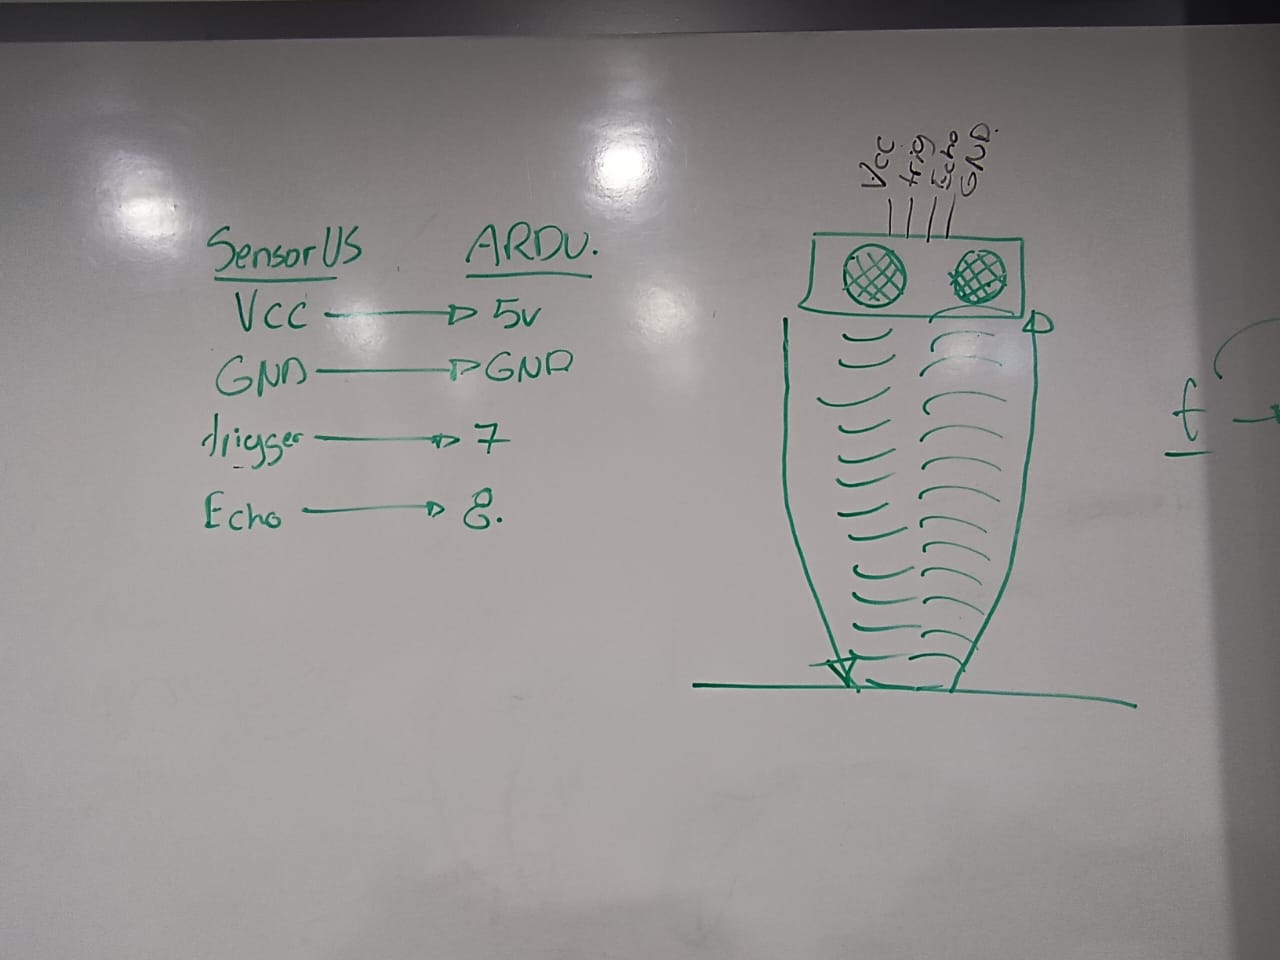 Sensor US ARDU.
Vcc 5v
GND GND
trigger 7
Echo 8.
Vcc
trig
Echo
GND.
t